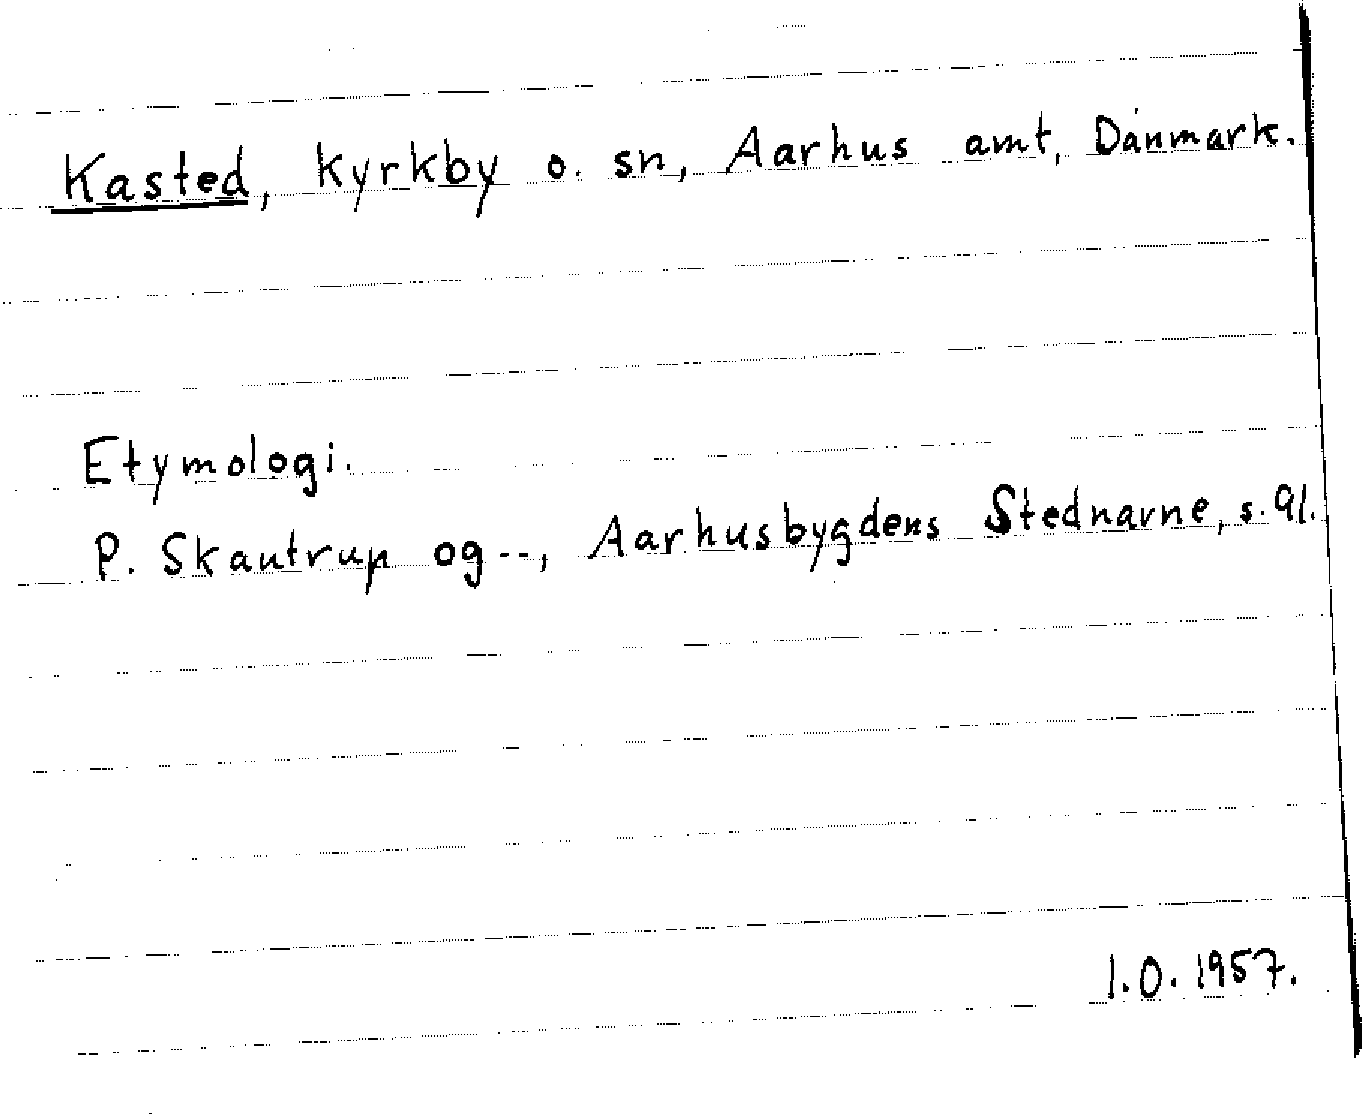 Kasted, kyrkby o. sn, Aarhus amt, Danmark.
Etymologi.
P. Skautrup og --, Aarhusbygdens Stednavne, s. 91.
I.O. 1957.